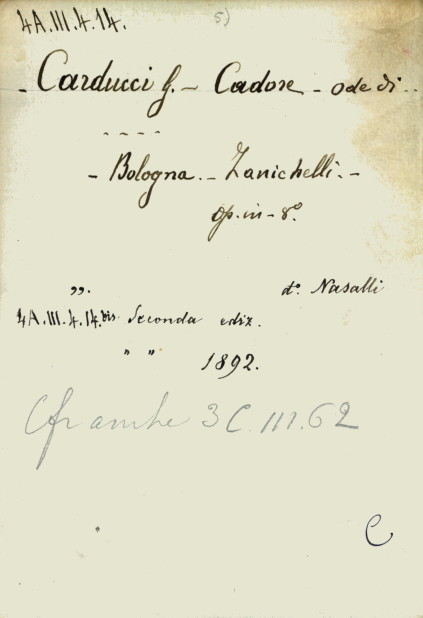 4A.III.4.14. 5)
- Carducci G. - Cadore - ode di..
- - - -
- Bologna. - Zanichelli. -
op. in - 8°.
„. d° Nasalli
4A.III.4.14.bis Seconda ediz.
" " 1892.
Cfr anche 3 C.III.62
C